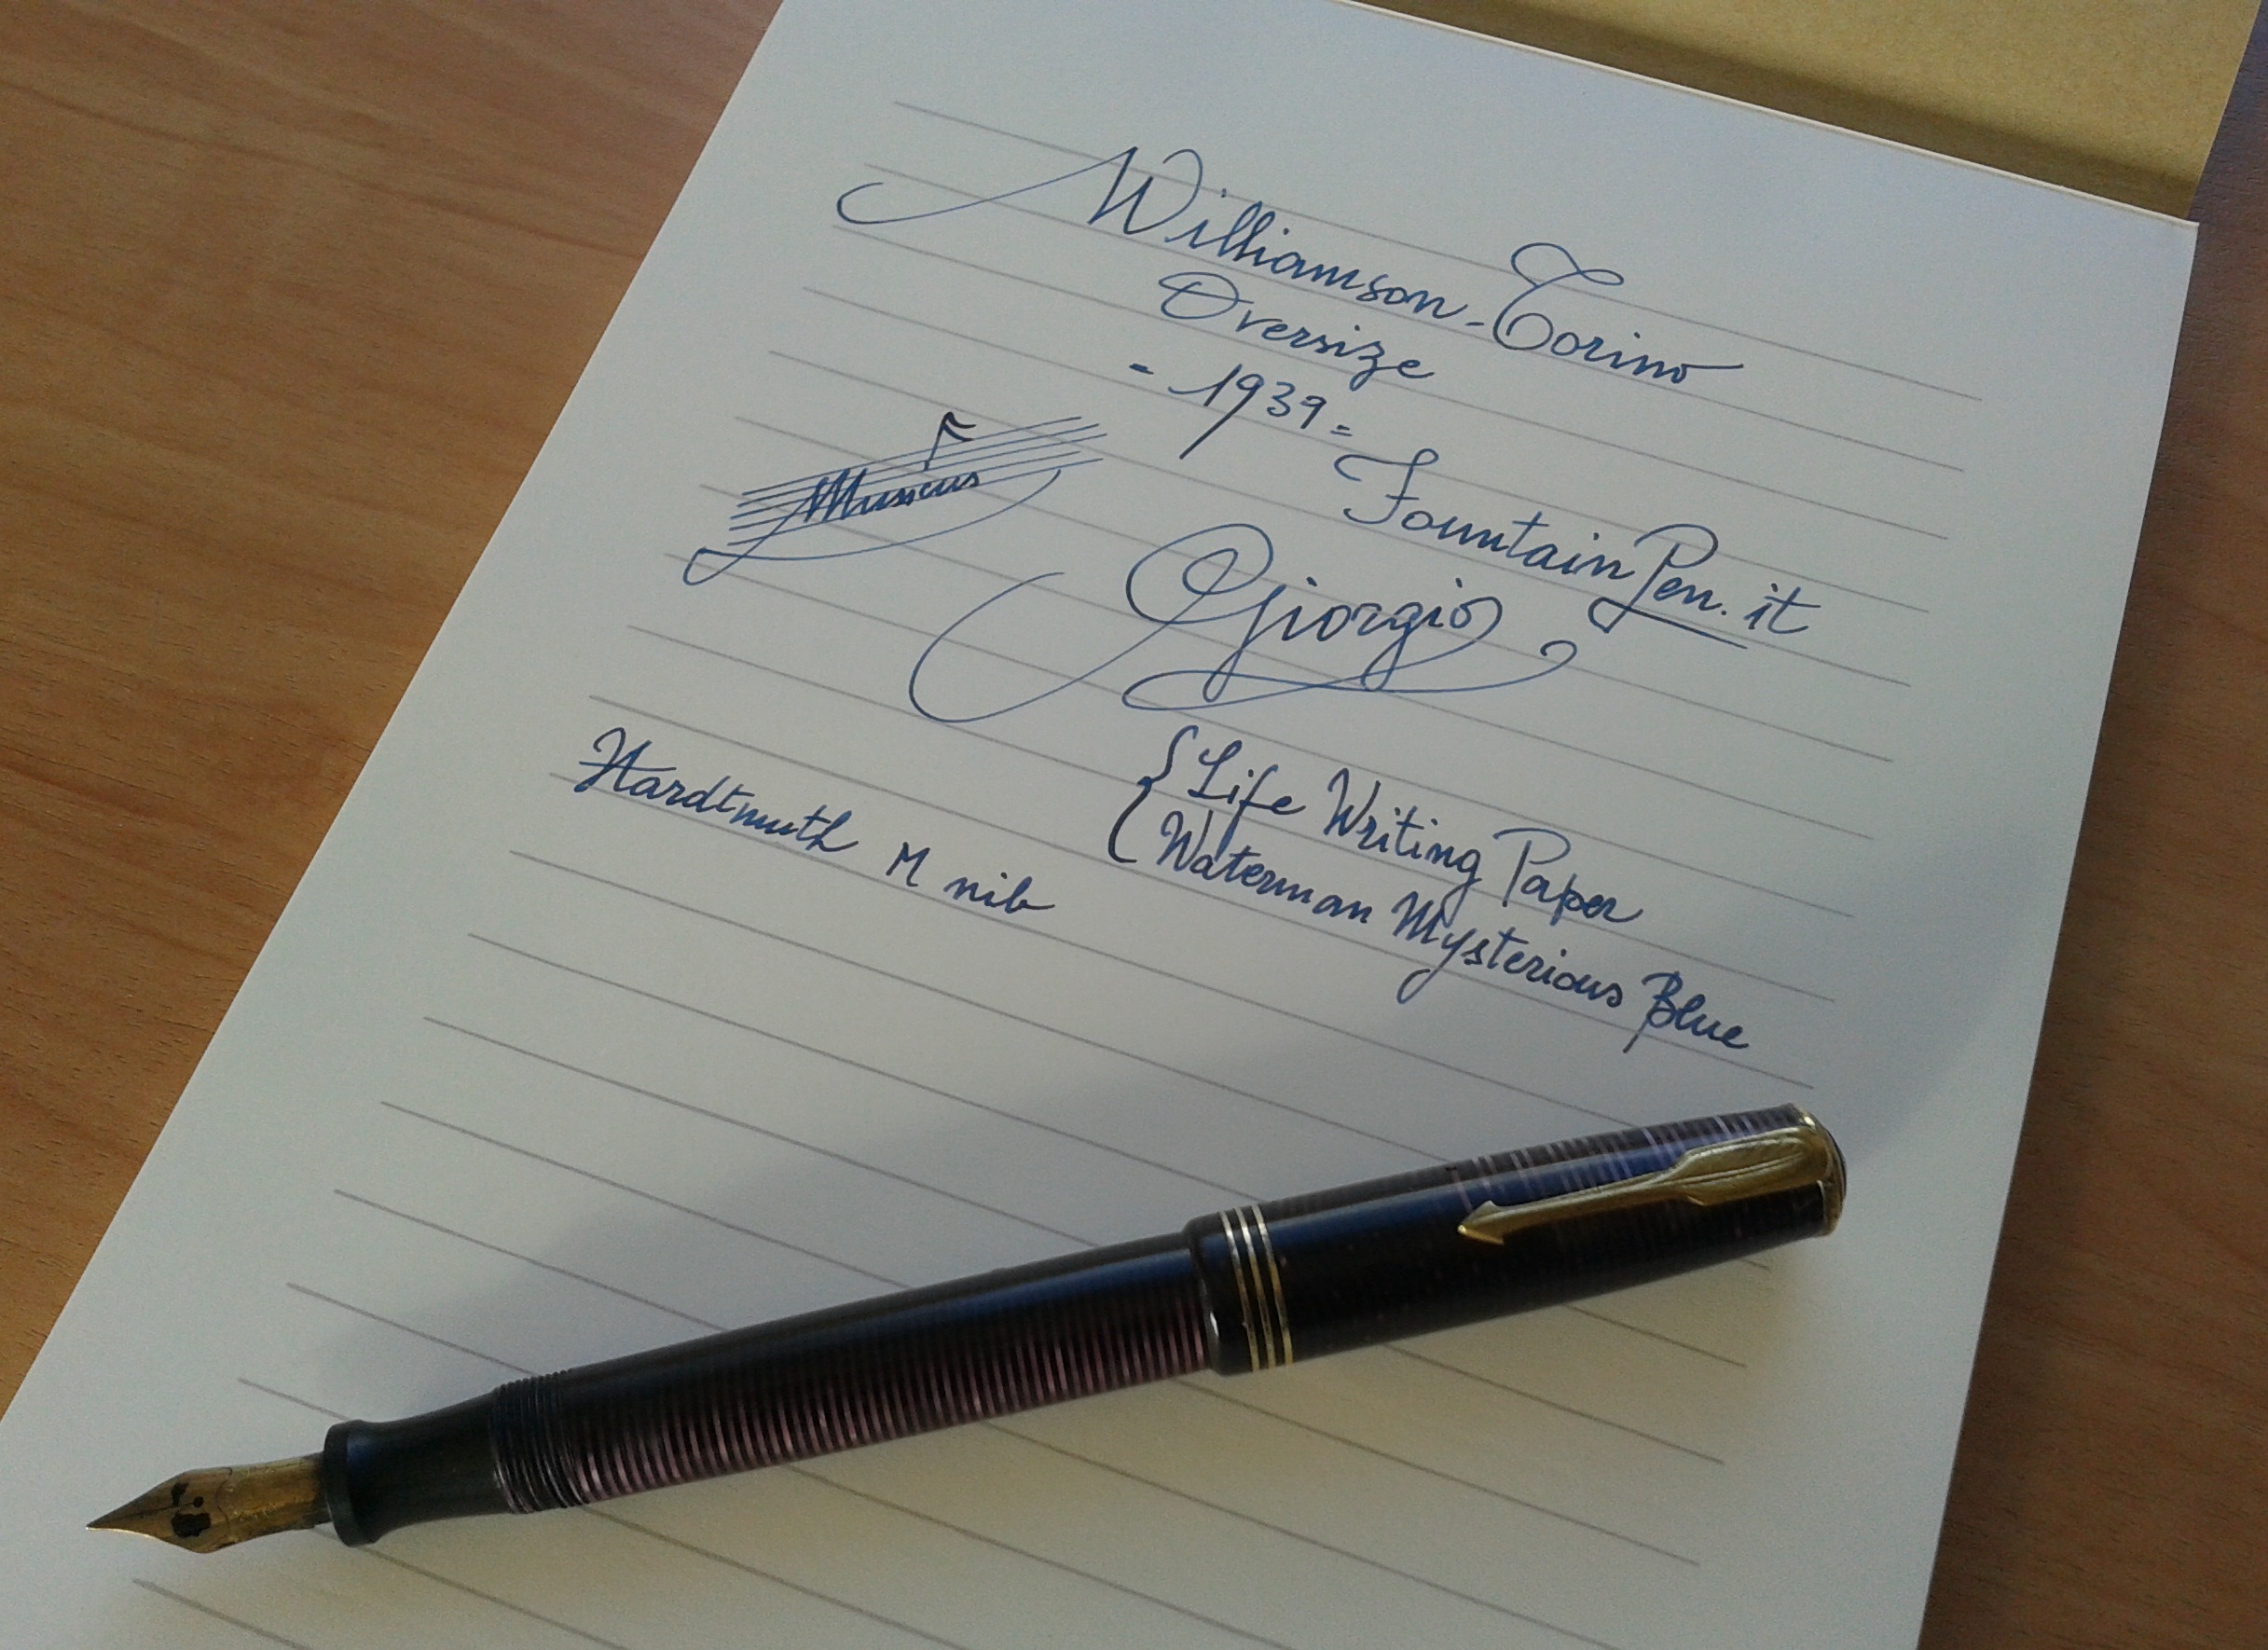 Williamson - Torino
Oversize
= 1939 =
Musicus
FountainPen.it
Giorgio
Hardtmuth M nib
{ Life Writing Paper
Waterman Mysterious Blue